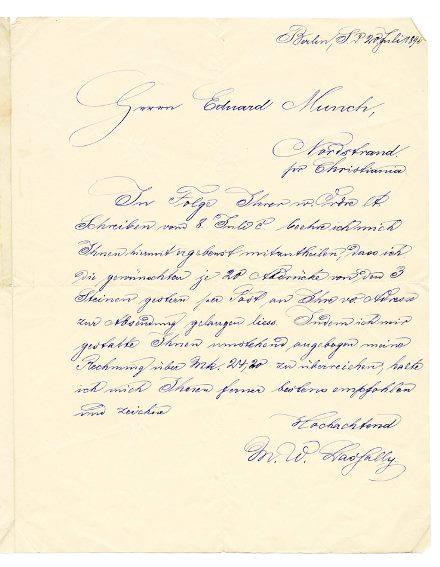 Berlin, S. d 20 Juli 1896
Herrn Eduard Munch,
Nordstrand
pr Christiania
In Folge Ihrer w. Ordre lt
Schreiben vom 8 Juli c beehre ich mich
Ihnen hiermit ergebenst mitzutheilen, dass ich
die gewünschten je 20 Abdrücke von den 3
Steinen gestern per Post an Ihre w. Adresse
zur Absendung gelangen liess. Indem ich mir
gestatte Ihnen umstehend angebogen meine
Rechnung über Mk. 24,20 zu überreichen, halte
ich mich Ihnen ferner bestens empfohlen
und zeichne
Hochachtend
M. W. Lassally